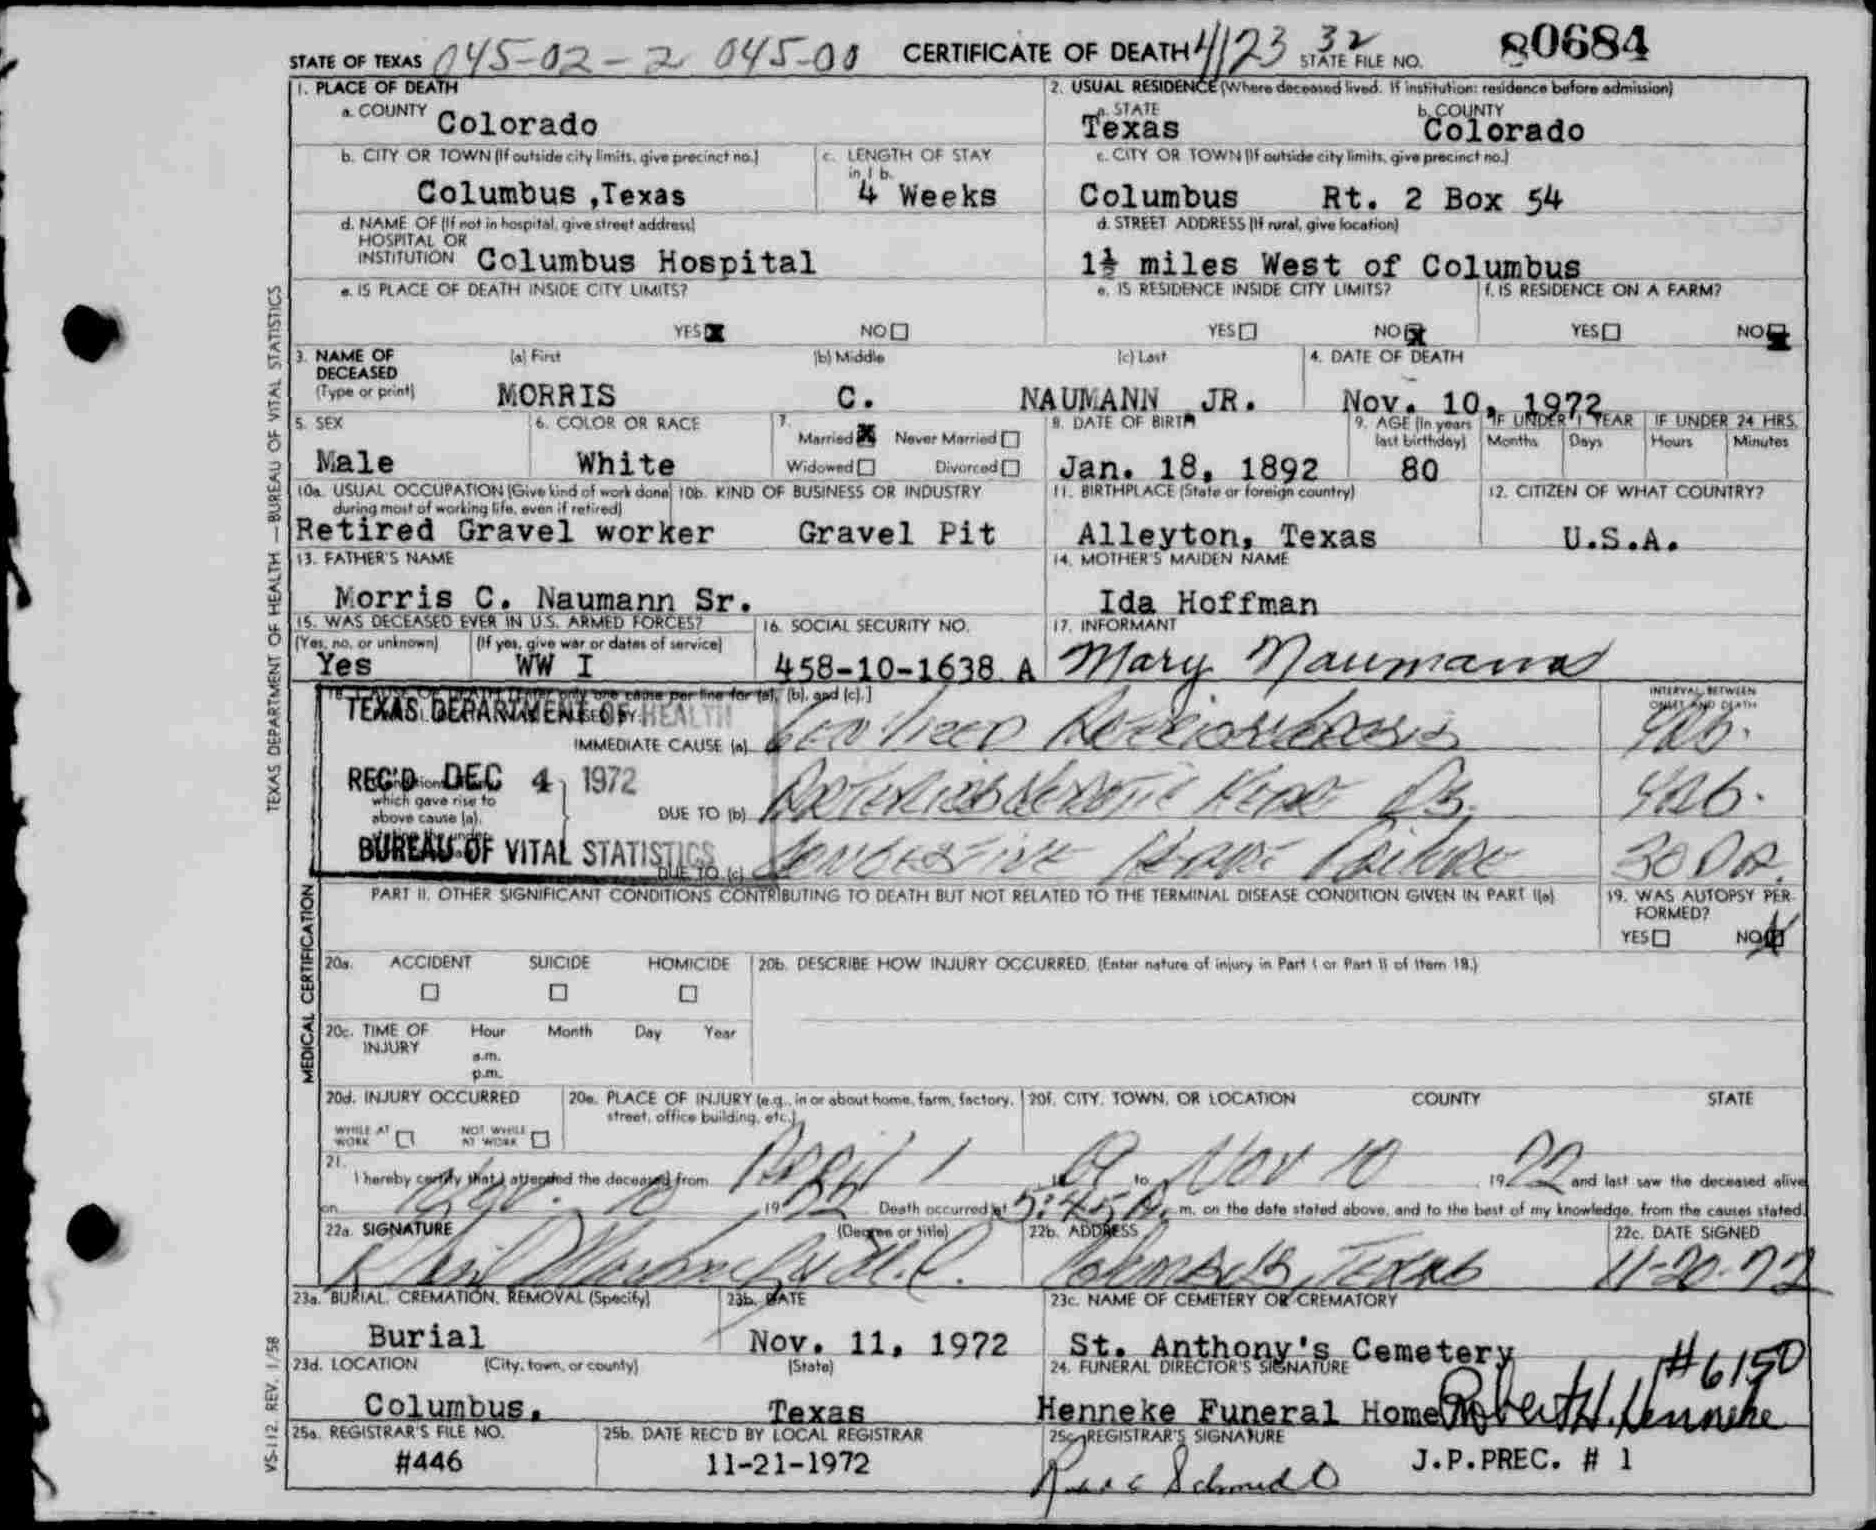 STATE OF TEXAS 045-02-2 045-00 CERTIFICATE OF DEATH 4123 32 STATE FILE NO. 80684
1. PLACE OF DEATH
a. COUNTY Colorado
2. USUAL RESIDENCE (Where deceased lived. If institution: residence before admission)
a. STATE Texas b. COUNTY Colorado
b. CITY OR TOWN (If outside city limits, give precinct no.) Columbus ,Texas
c. LENGTH OF STAY in 1 b. 4 Weeks
c. CITY OR TOWN (If outside city limits, give precinct no.) Columbus Rt. 2 Box 54
d. NAME OF (If not in hospital, give street address)
HOSPITAL OR
INSTITUTION Columbus Hospital
d. STREET ADDRESS (If rural, give location)
1½ miles West of Columbus
e. IS PLACE OF DEATH INSIDE CITY LIMITS?
YES NO
e. IS RESIDENCE INSIDE CITY LIMITS?
YES NO
f. IS RESIDENCE ON A FARM?
YES NO
3. NAME OF DECEASED (Type or print)
(a) First MORRIS
(b) Middle C.
(c) Last NAUMANN JR.
4. DATE OF DEATH
Nov. 10, 1972
5. SEX Male
6. COLOR OR RACE White
7. Married Never Married
Widowed Divorced
8. DATE OF BIRTH Jan. 18, 1892
9. AGE (In years last birthday) 80
IF UNDER 1 YEAR Months Days
IF UNDER 24 HRS. Hours Minutes
10a. USUAL OCCUPATION (Give kind of work done during most of working life, even if retired)
Retired Gravel worker
10b. KIND OF BUSINESS OR INDUSTRY
Gravel Pit
11. BIRTHPLACE (State or foreign country)
Alleyton, Texas
12. CITIZEN OF WHAT COUNTRY?
U.S.A.
13. FATHER'S NAME
Morris C. Naumann Sr.
14. MOTHER'S MAIDEN NAME
Ida Hoffman
15. WAS DECEASED EVER IN U.S. ARMED FORCES?
(Yes, no, or unknown) Yes
(If yes, give war or dates of service) WW I
16. SOCIAL SECURITY NO.
458-10-1638 A
17. INFORMANT
Mary Naumann
18. CAUSE OF DEATH [Enter only one cause per line for (a), (b), and (c).]
INTERVAL BETWEEN ONSET AND DEATH
TEXAS DEPARTMENT OF HEALTH
REC'D DEC 4 1972
BUREAU OF VITAL STATISTICS
IMMEDIATE CAUSE (a)
which gave rise to
above cause (a),
DUE TO (b)
DUE TO (c) Congestive Heart Failure 30 Da.
PART II. OTHER SIGNIFICANT CONDITIONS CONTRIBUTING TO DEATH BUT NOT RELATED TO THE TERMINAL DISEASE CONDITION GIVEN IN PART I(a)
19. WAS AUTOPSY PERFORMED?
YES NO
20a. ACCIDENT SUICIDE HOMICIDE
20b. DESCRIBE HOW INJURY OCCURRED. (Enter nature of injury in Part I or Part II of Item 18.)
20c. TIME OF INJURY Hour Month Day Year
a.m.
p.m.
20d. INJURY OCCURRED
WHILE AT WORK NOT WHILE AT WORK
20e. PLACE OF INJURY (e.g., in or about home, farm, factory, street, office building, etc.)
20f. CITY, TOWN, OR LOCATION COUNTY STATE
21. I hereby certify that I attended the deceased from April 1 to Nov 10 1972 and last saw the deceased alive
on Nov. 10 1972 Death occurred at 5:45 A. m. on the date stated above, and to the best of my knowledge, from the causes stated.
22a. SIGNATURE (Degree or title)
22b. ADDRESS
Columbus, Texas
22c. DATE SIGNED
11-20-72
23a. BURIAL, CREMATION, REMOVAL (Specify)
Burial
23b. DATE
Nov. 11, 1972
23c. NAME OF CEMETERY OR CREMATORY
St. Anthony's Cemetery
23d. LOCATION (City, town, or county) (State)
Columbus, Texas
24. FUNERAL DIRECTOR'S SIGNATURE #6150
Henneke Funeral Home Robert H. Henneke
25a. REGISTRAR'S FILE NO.
#446
25b. DATE REC'D BY LOCAL REGISTRAR
11-21-1972
25c. REGISTRAR'S SIGNATURE
Schmidt J.P.PREC. # 1
TEXAS DEPARTMENT OF HEALTH — BUREAU OF VITAL STATISTICS
MEDICAL CERTIFICATION
VS-112 REV. 1/58